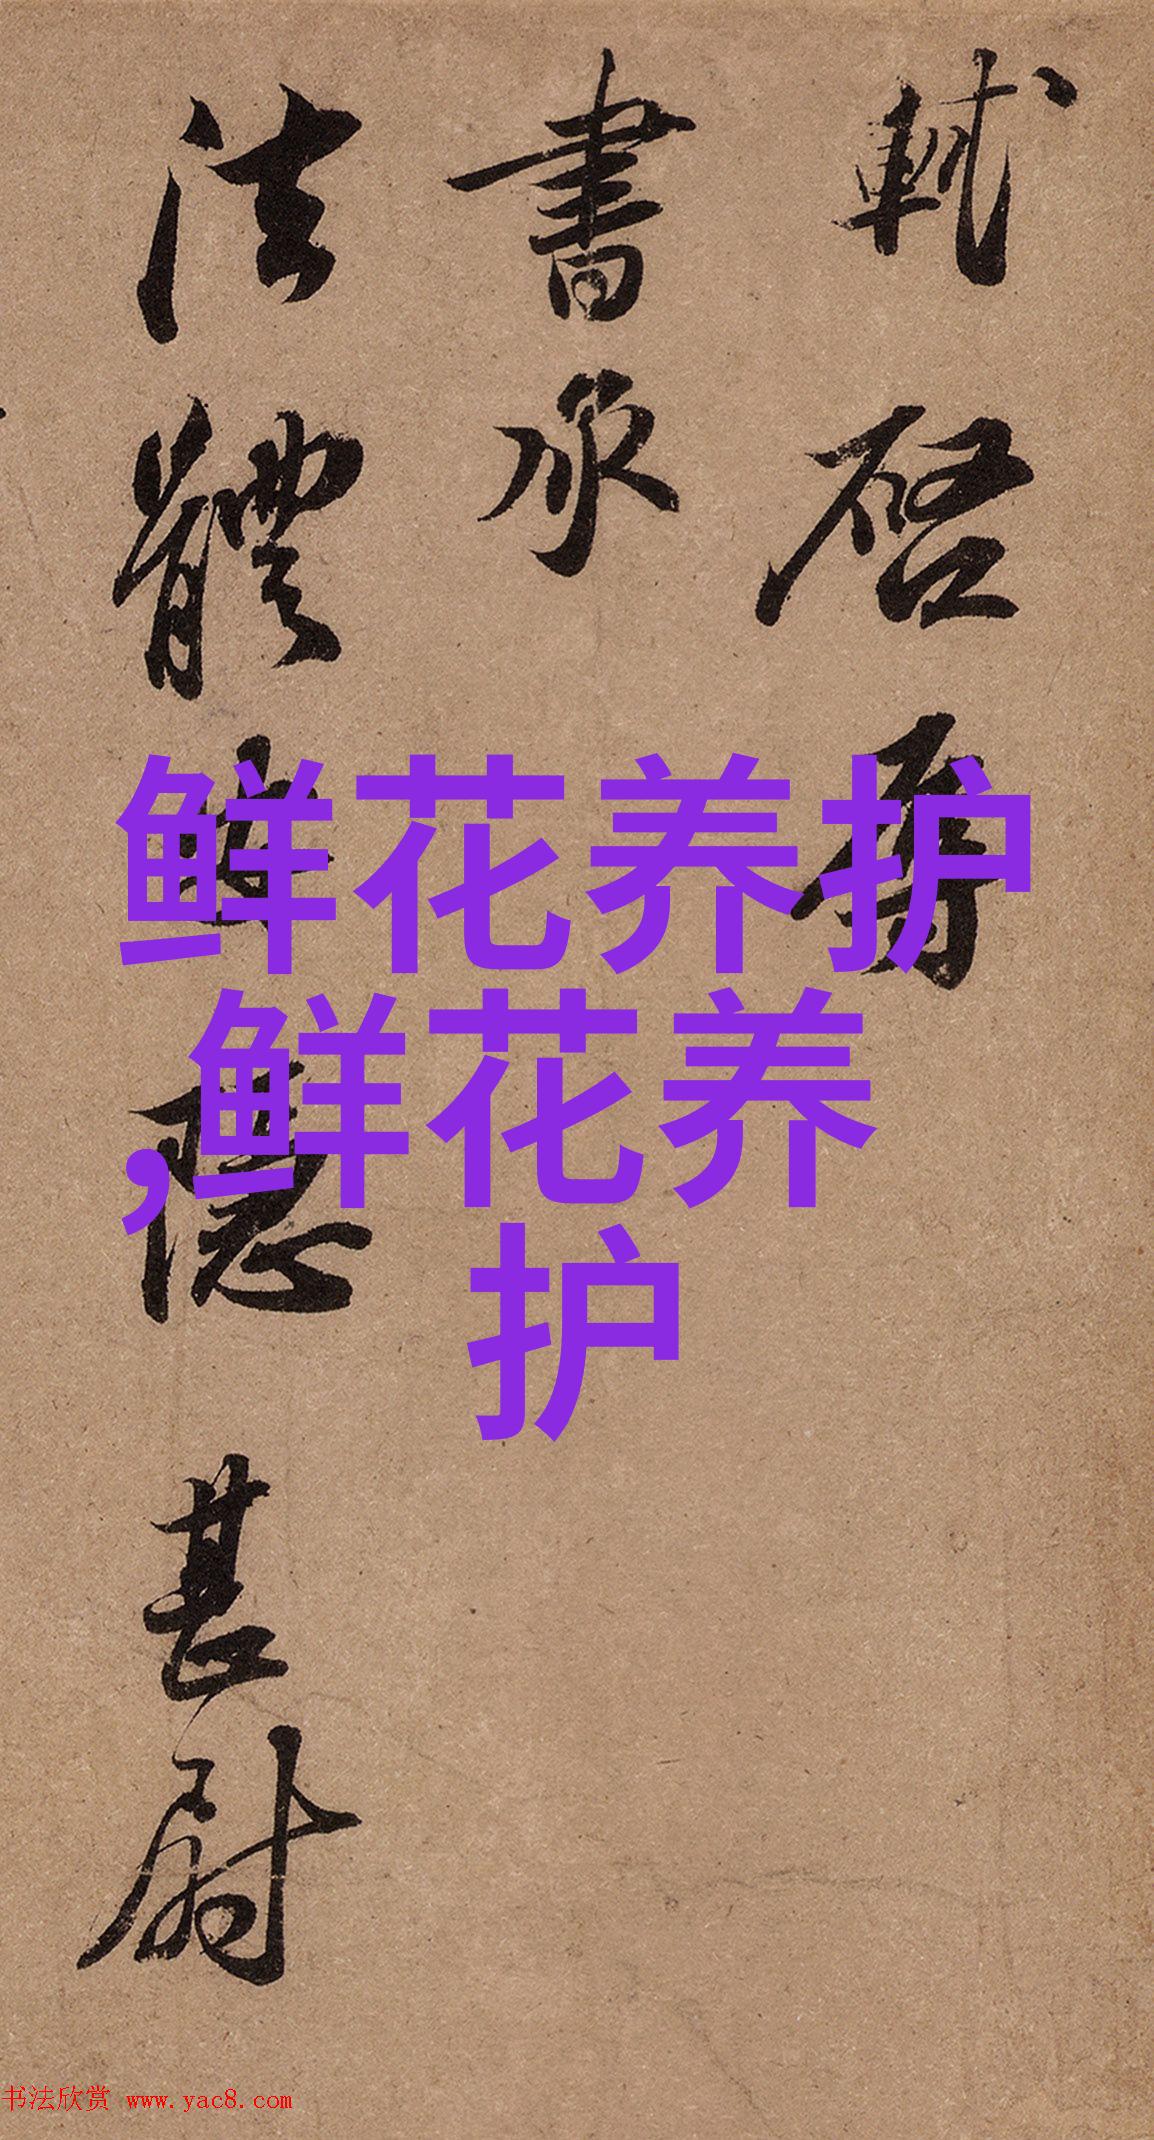 軾啓辱
書承
法體安隱甚尉
鲜花养护
,鲜花养
护
书法欣赏 www.yac8.com